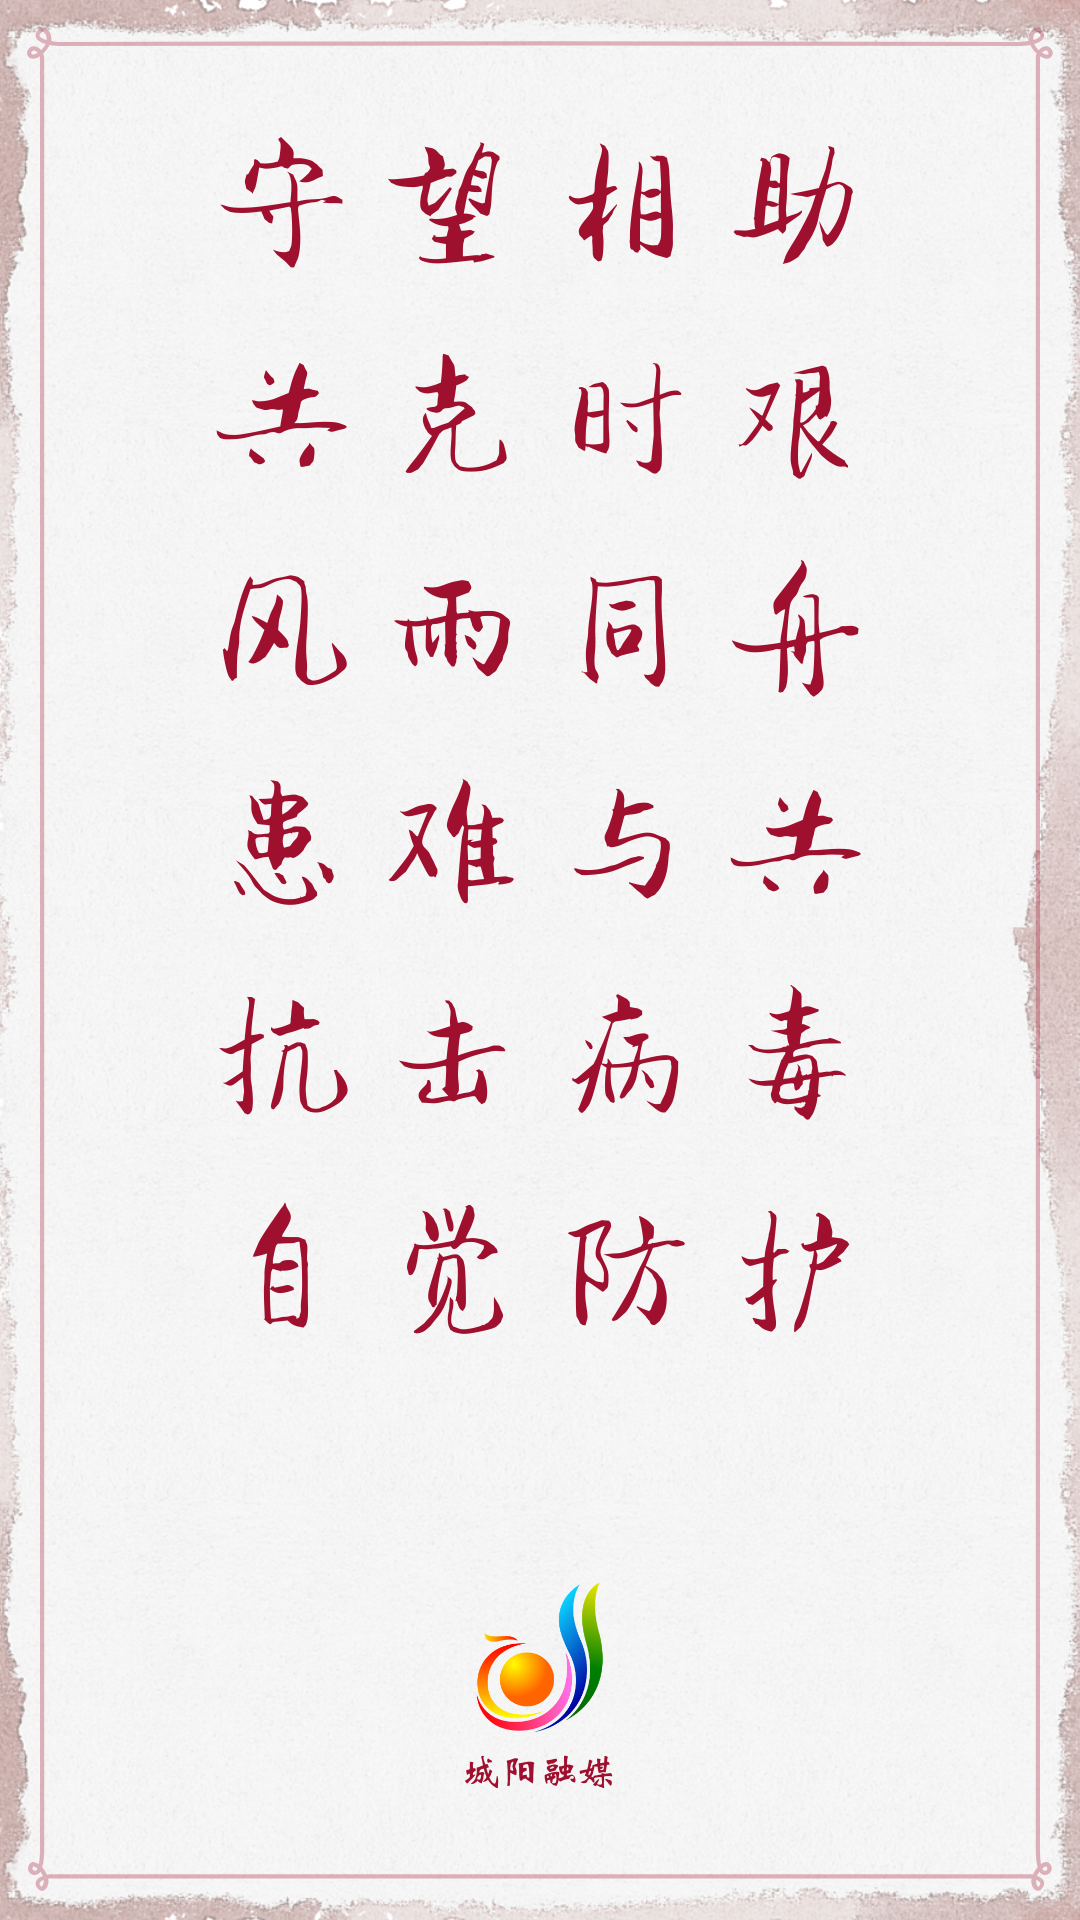 守望相助
共克时艰
风雨同舟
患难与共
抗击病毒
自觉防护
城阳融媒